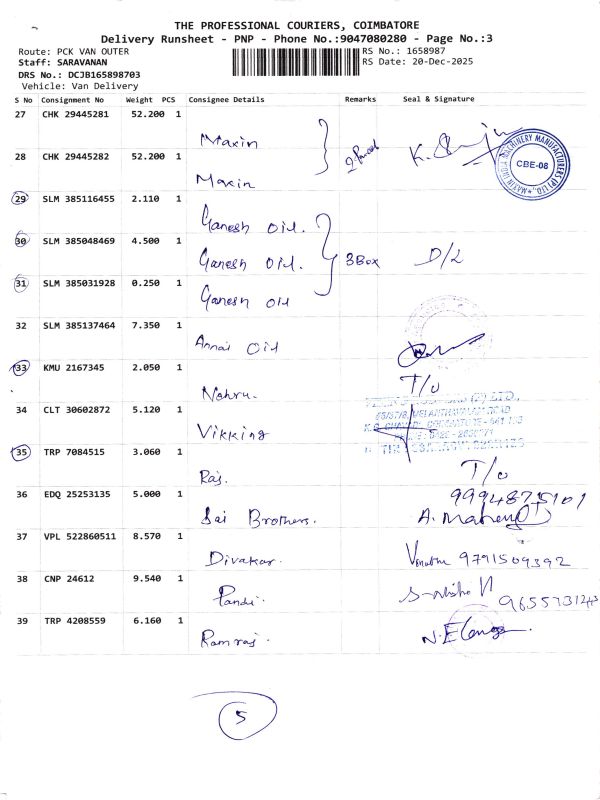 THE PROFESSIONAL COURIERS, COIMBATORE
Delivery Runsheet - PNP - Phone No.:9047080280 - Page No.:3
Route: PCK VAN OUTER RS No.: 1658987
Staff: SARAVANAN RS Date: 20-Dec-2025
DRS No.: DCJB165898703
Vehicle: Van Delivery
S No Consignment No Weight PCS Consignee Details Remarks Seal & Signature
27 CHK 29445281 52.200 1
Maxin
28 CHK 29445282 52.200 1
MAXIN INDIA MACHINERY MANUFACTURERS (P) LTD., CBE-08
Maxin
29 SLM 385116455 2.110 1
Ganesh Oil.
30 SLM 385048469 4.500 1
Ganesh Oil. 3 Box D/L
31 SLM 385031928 0.250 1
Ganesh Oil
32 SLM 385137464 7.350 1
Annai Oil
33 KMU 2167345 2.050 1
T/o
Nehru.
34 CLT 30602872 5.120 1
Vikking
35 TRP 7084515 3.060 1
T/o
Raj.
36 EDQ 25253135 5.000 1
9994875101
Sai Brothers.
37 VPL 522860511 8.570 1
Divakar. 9791509392
38 CNP 24612 9.540 1
Pandi.
39 TRP 4208559 6.160 1
Ramraj N. Elango
5